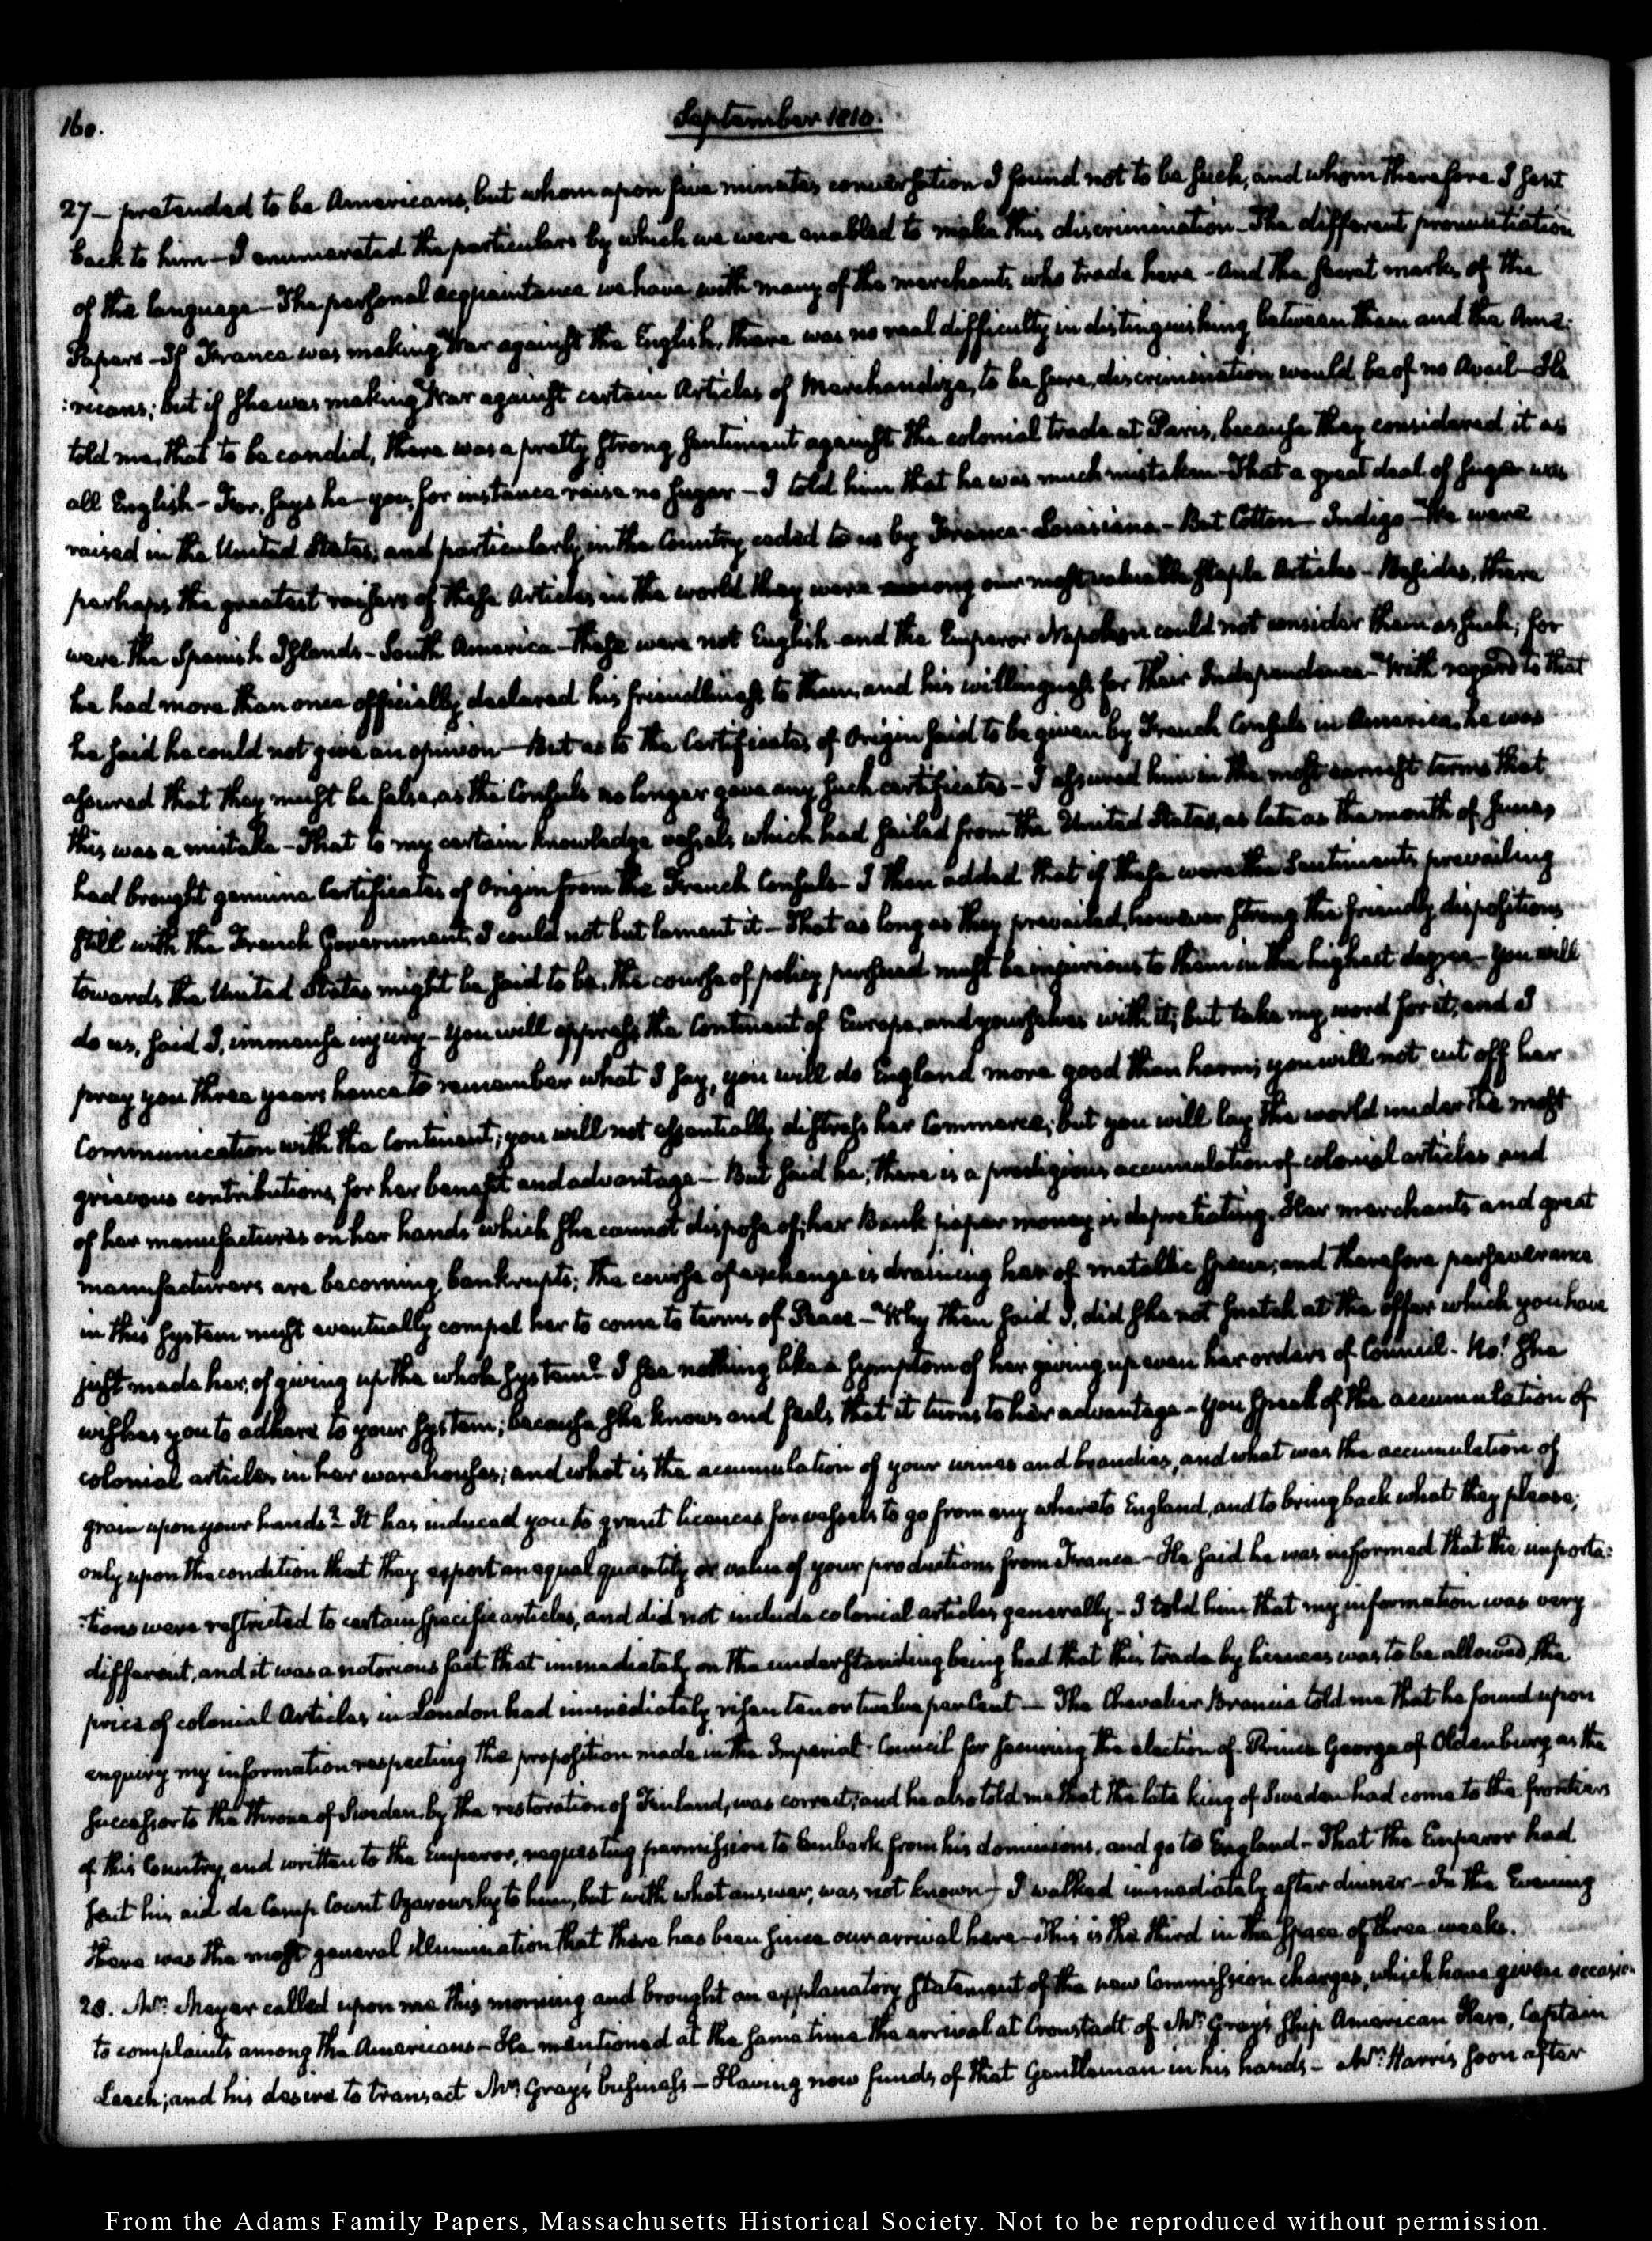 160.
September 1810.
27 — pretended to be Americans, but whom upon five minutes conversation I found not to be such, and whom therefore I sent
back to him — I enumerated the particulars by which we were enabled to make this discrimination — The different pronuntiation
of the language — The personal acquaintance we have with many of the merchants who trade here — And the secret marks of the
Papers — If France was making War against the English, there was no real difficulty in distinguishing between them and the Ame:
:ricans; but if she was making War against certain Articles of Merchandize, to be sure, discrimination would be of no avail — He
told me, that to be candid, there was a pretty strong sentiment against the colonial trade at Paris, because they considered it as
all English — For, says he — you, for instance raise no sugar — I told him that he was much mistaken — That a great deal of sugar was
raised in the United States, and particularly in the Country ceded to us by France — Louisiana — But Cotton — Indigo — We were
perhaps the greatest raisers of these Articles in the world they were among our most valuable staple Articles — Besides, there
were the Spanish Islands — South America — these were not English and the Emperor Napoleon could not consider them as such; for
he had more than once officially declared his friendliness to them, and his willingness for their Independence — With regard to that
he said he could not give an opinion — But as to the Certificates of Origin said to be given by French Consuls in America, he was
assured that they must be false, as the Consuls no longer gave any such certificates — I assured him in the most earnest terms that
this was a mistake — That to my certain knowledge vessels which had sailed from the United States, as late as the month of June,
had brought genuine Certificates of Origin from the French Consuls — I then added that if these were the Sentiments prevailing
still with the French Government, I could not but lament it — That as long as they prevailed, however strong the friendly dispositions
towards the United States might be said to be, the course of policy pursued must be injurious to them in the highest degree — You will
do us, said I, immense injury — You will oppress the Continent of Europe, and yourselves with it; but take my word for it, and I
pray you three years hence to remember what I say, you will do England more good than harm; you will not cut off her
Communication with the Continent; you will not essentially distress her Commerce; but you will lay the world under the most
grievous contributions, for her benefit and advantage — But said he; there is a prodigious accumulation of colonial articles and
of her manufactures on her hands which she cannot dispose of; her Bank paper money is depretiating. Her merchants and great
manufacturers are becoming bankrupts; the course of exchange is draining her of metallic specie; and therefore perseverance
in this system must eventually compel her to come to terms of Peace — Why then said I, did she not snatch at the offer which you have
just made her, of giving up the whole system? I see nothing like a symptom of her giving up even her orders of Council. No! She
wishes you to adhere to your system; because she knows and feels that it turns to her advantage — You speak of the accumulation of
colonial articles in her warehouses; and what is the accumulation of your wines and brandies, and what was the accumulation of
grain upon your hands? It has induced you to grant licences for vessels to go from any where to England, and to bring back what they please;
only upon the condition that they export an equal quantity or value of your productions from France — He said he was informed that the importa:
:tions were restricted to certain specific articles, and did not include colonial articles generally — I told him that my information was very
different, and it was a notorious fact that immediately on the understanding being had that this trade by licences was to be allowed, the
price of colonial Articles in London had immediately risen ten or twelve per Cent — The Chevalier Brancia told me that he found upon
enquiry my information respecting the proposition made in the Imperial Council for securing the election of Prince George of Oldenburg as the
successor to the throne of Sweden, by the restoration of Finland, was correct; and he also told me that the late king of Sweden had come to the frontiers
of this Country, and written to the Emperor, requesting permission to Embark from his dominions, and go to England — That the Emperor had
sent his aid de Camp Count Ozarowsky to him, but with what answer, was not known — I walked immediately after dinner — In the Evening
there was the most general illumination that there has been since our arrival here — This is the third in the space of three weeks.
28. Mr: Meyer called upon me this morning and brought an explanatory statement of the new Commission charges, which have given occasion
to complaints among the Americans — He mentioned at the same time the arrival at Cronstadt of Mr: Gray's ship American Hero, Captain
Leach; and his desire to transact Mr: Gray's business — Having now funds of that Gentleman in his hands — Mr: Harris soon after
From the Adams Family Papers, Massachusetts Historical Society. Not to be reproduced without permission.